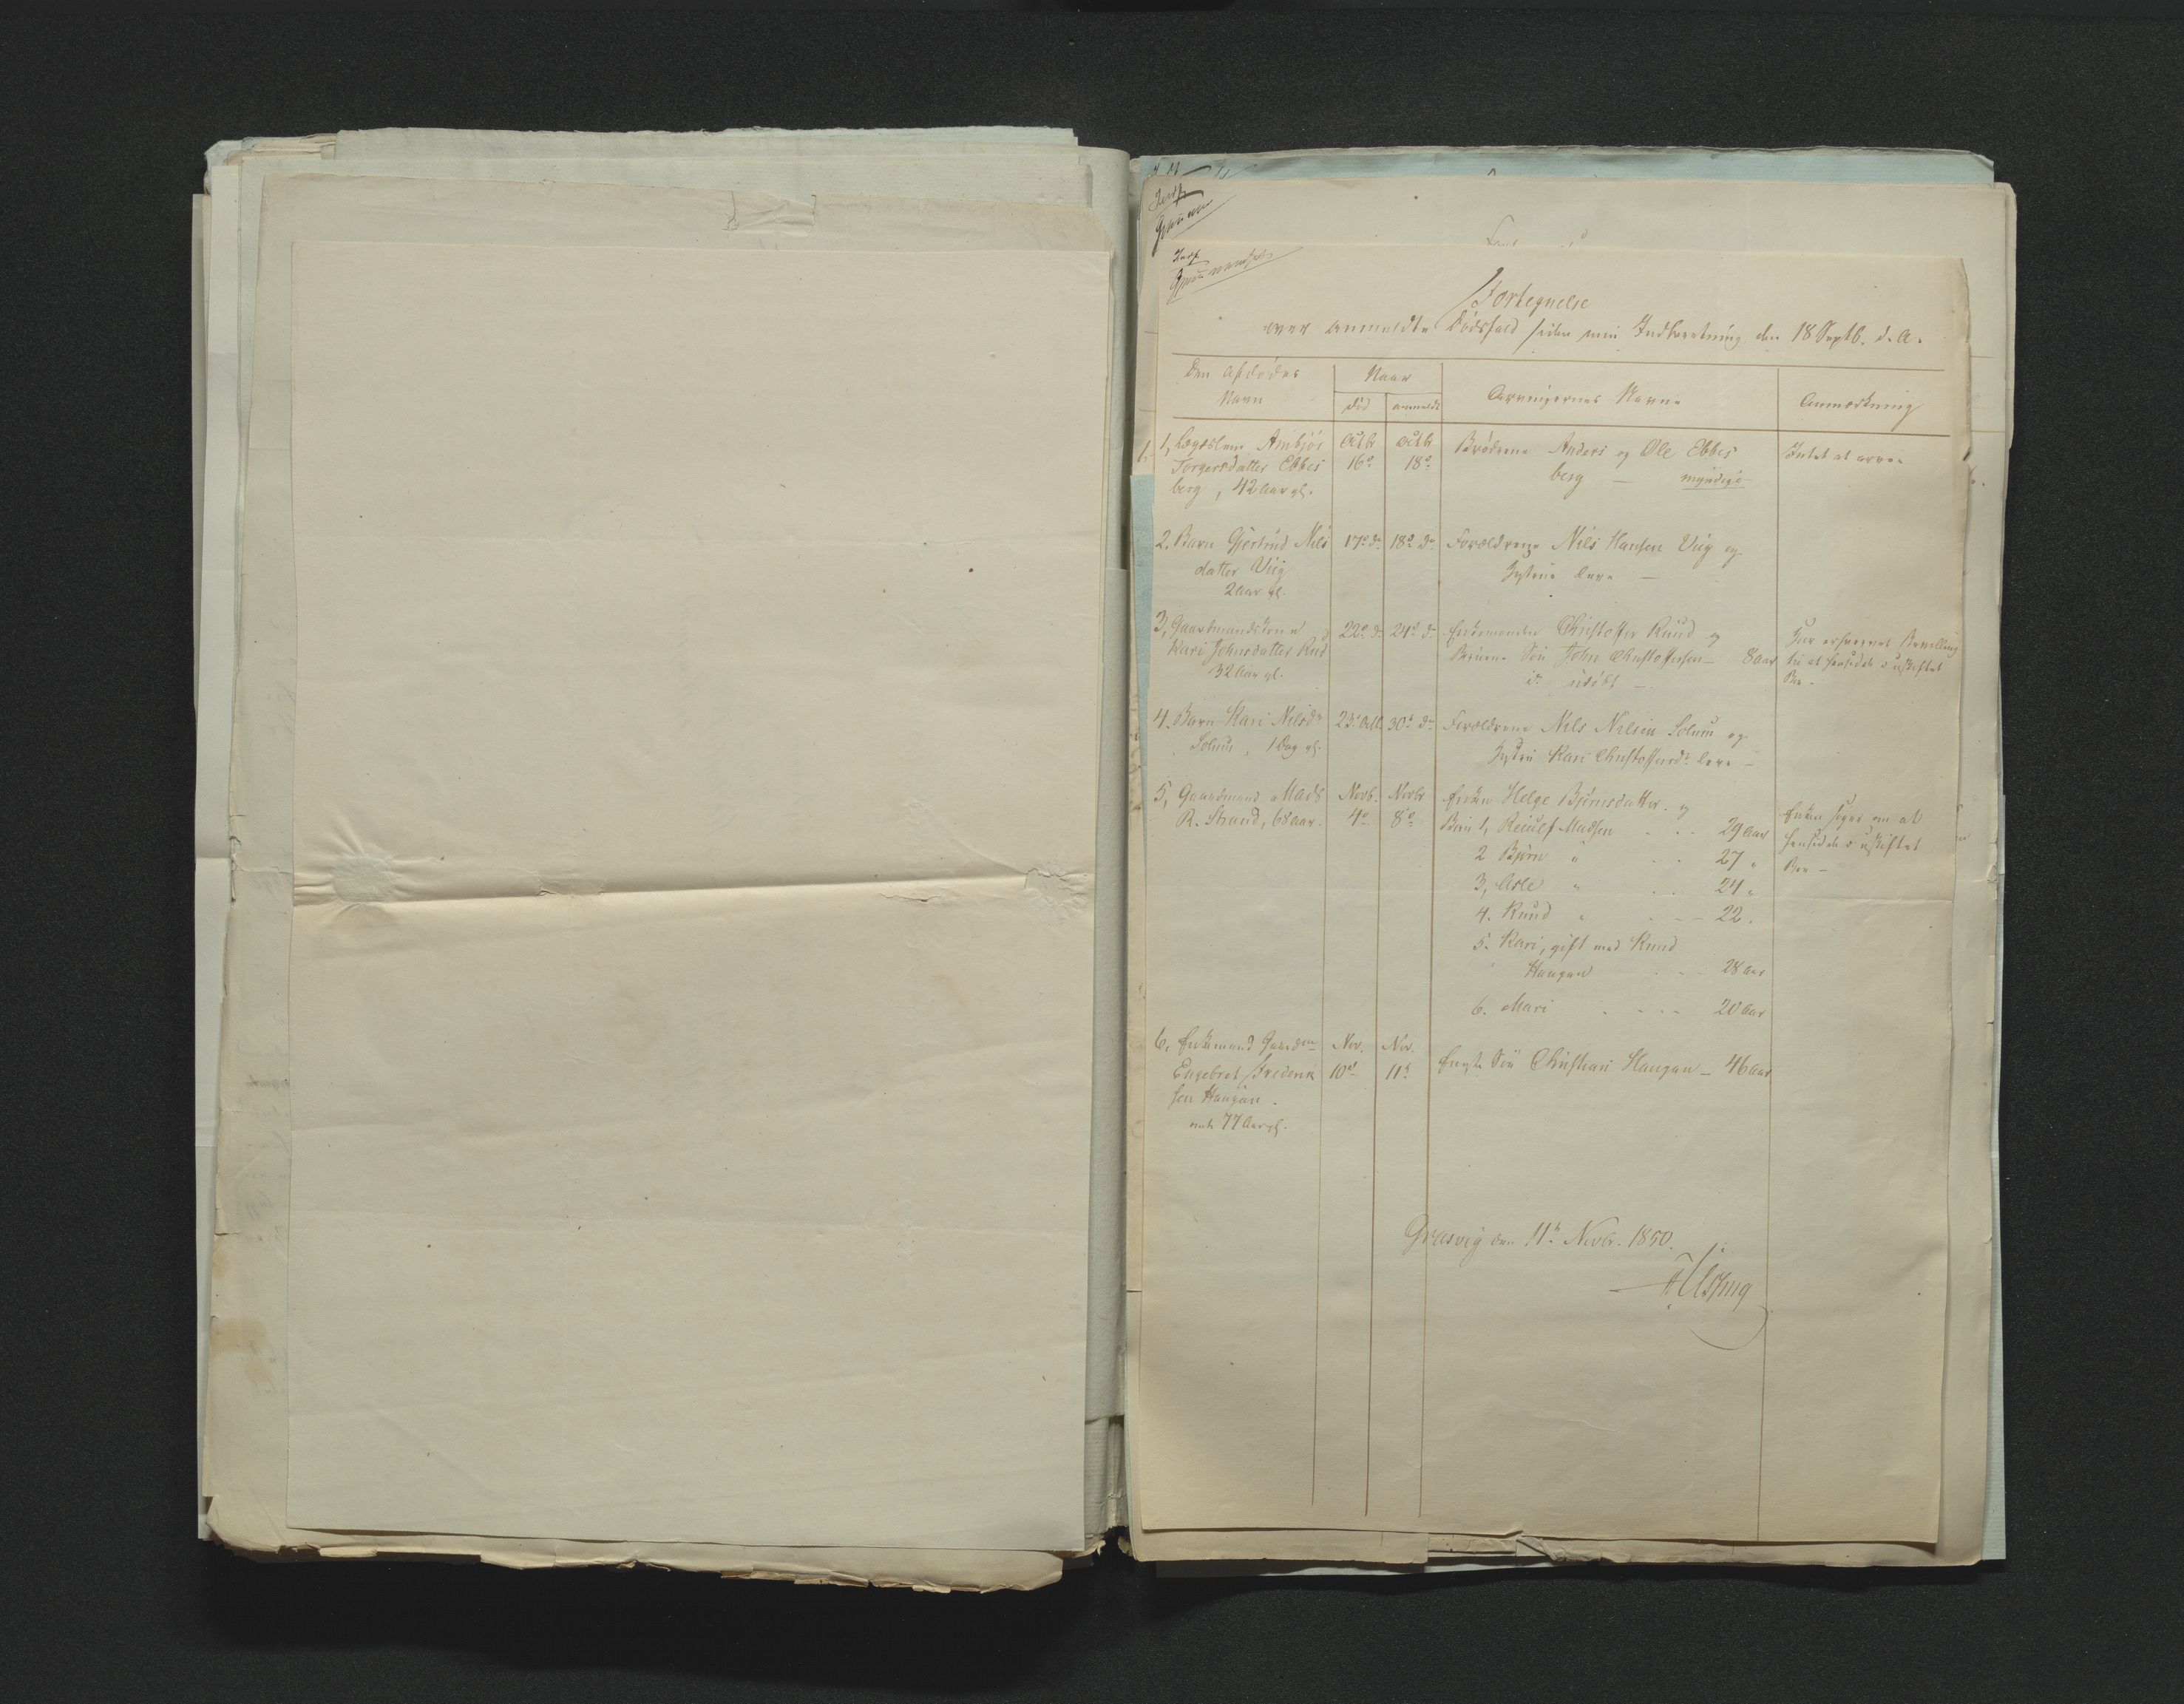 Fortegnelse
over anmeldte Dødsfald siden min Indberetning den 18 Septb. d. A.
Den Afdødes
Navn
Naar
død
anmeldt
Arvingernes Navne
Anmærkning
1, Lægdslem Ambjør
Torgersdatter Ebbes
berg, 42 Aar gl.
Octbr
16de
Octbr
18de
Brødrene Anders og Ole Ebbes
berg — myndige
Intet at arve
2. Barn Gjertrud Nils
datter Viig
2 Aar gl.
17de do
18de do
Forældrene Nils Hansen Viig og
Hustru leve —
3, Gaardmandskone
Kari Johnsdatter Rud
32 Aar gl.
22de do
24de do
Enkemanden Christoffer Ruud og
Børnene Søn John Christoffersen — 8 Aar
udøbt —
Har erhvervet Bevilling
til at hensidde i uskiftet
Bo.
4. Barn Kari Nilsdr
Solum, 1 Dag gl.
23de Octb.
30te do
Forældrene Nils Nilsen Solum og
Hustru Kari Christoffersdr leve —
5, Gaardmand Mads
R. Strand, 68 Aar.
Novb.
4de
Novbr
8de
Enken Helge Bjørnsdatter og
Børn 1, Reiulf Madsen . . . 29 Aar
2 Bjørn " . . 27 "
3, Asle " . . 24 "
4. Knud " . — 22.
5. Kari, gift med Knud
Haugan . . 28 Aar
6. Mari . . . . 20 Aar
Enken siger om at
hensidde i uskiftet
Bo —
6, Enkemand Gaardm
Engebret Frederik
sen Haugan.
77 Aar gl.
Nov.
10de
Nov.
11te
Eneste Søn Christian Haugan — 46 Aar
Græsvig den 11te Novbr. 1850.